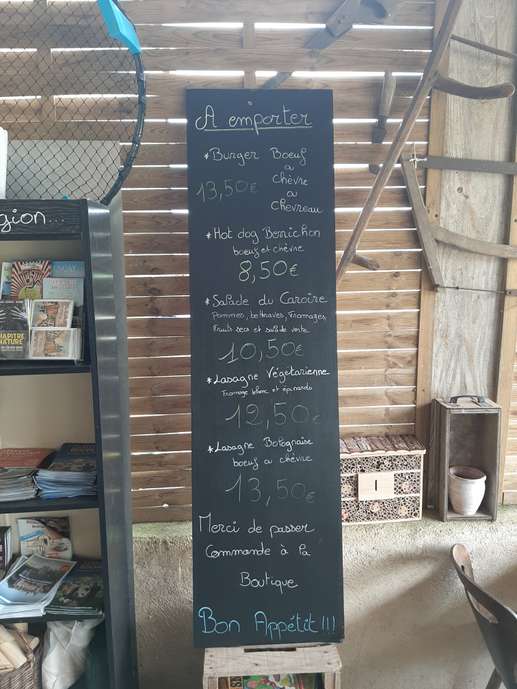 A emporter
*Burger Boeuf
ou
Chèvre
13,50€
ou
Chevreau
*Hot dog Berrichon
boeuf et chèvre
8,50€
*Salade du Caroire
Pommes, betteraves, fromages,
Fruits secs et salade verte
10,50€
*Lasagne Végétarienne
Fromage blanc et épinards
12,50€
*Lasagne Bolognaise
boeuf ou chèvre
13,50€
Merci de passer
Commande à la
Boutique
Bon Appétit!!!
gion...
CHAPITRE
NATURE